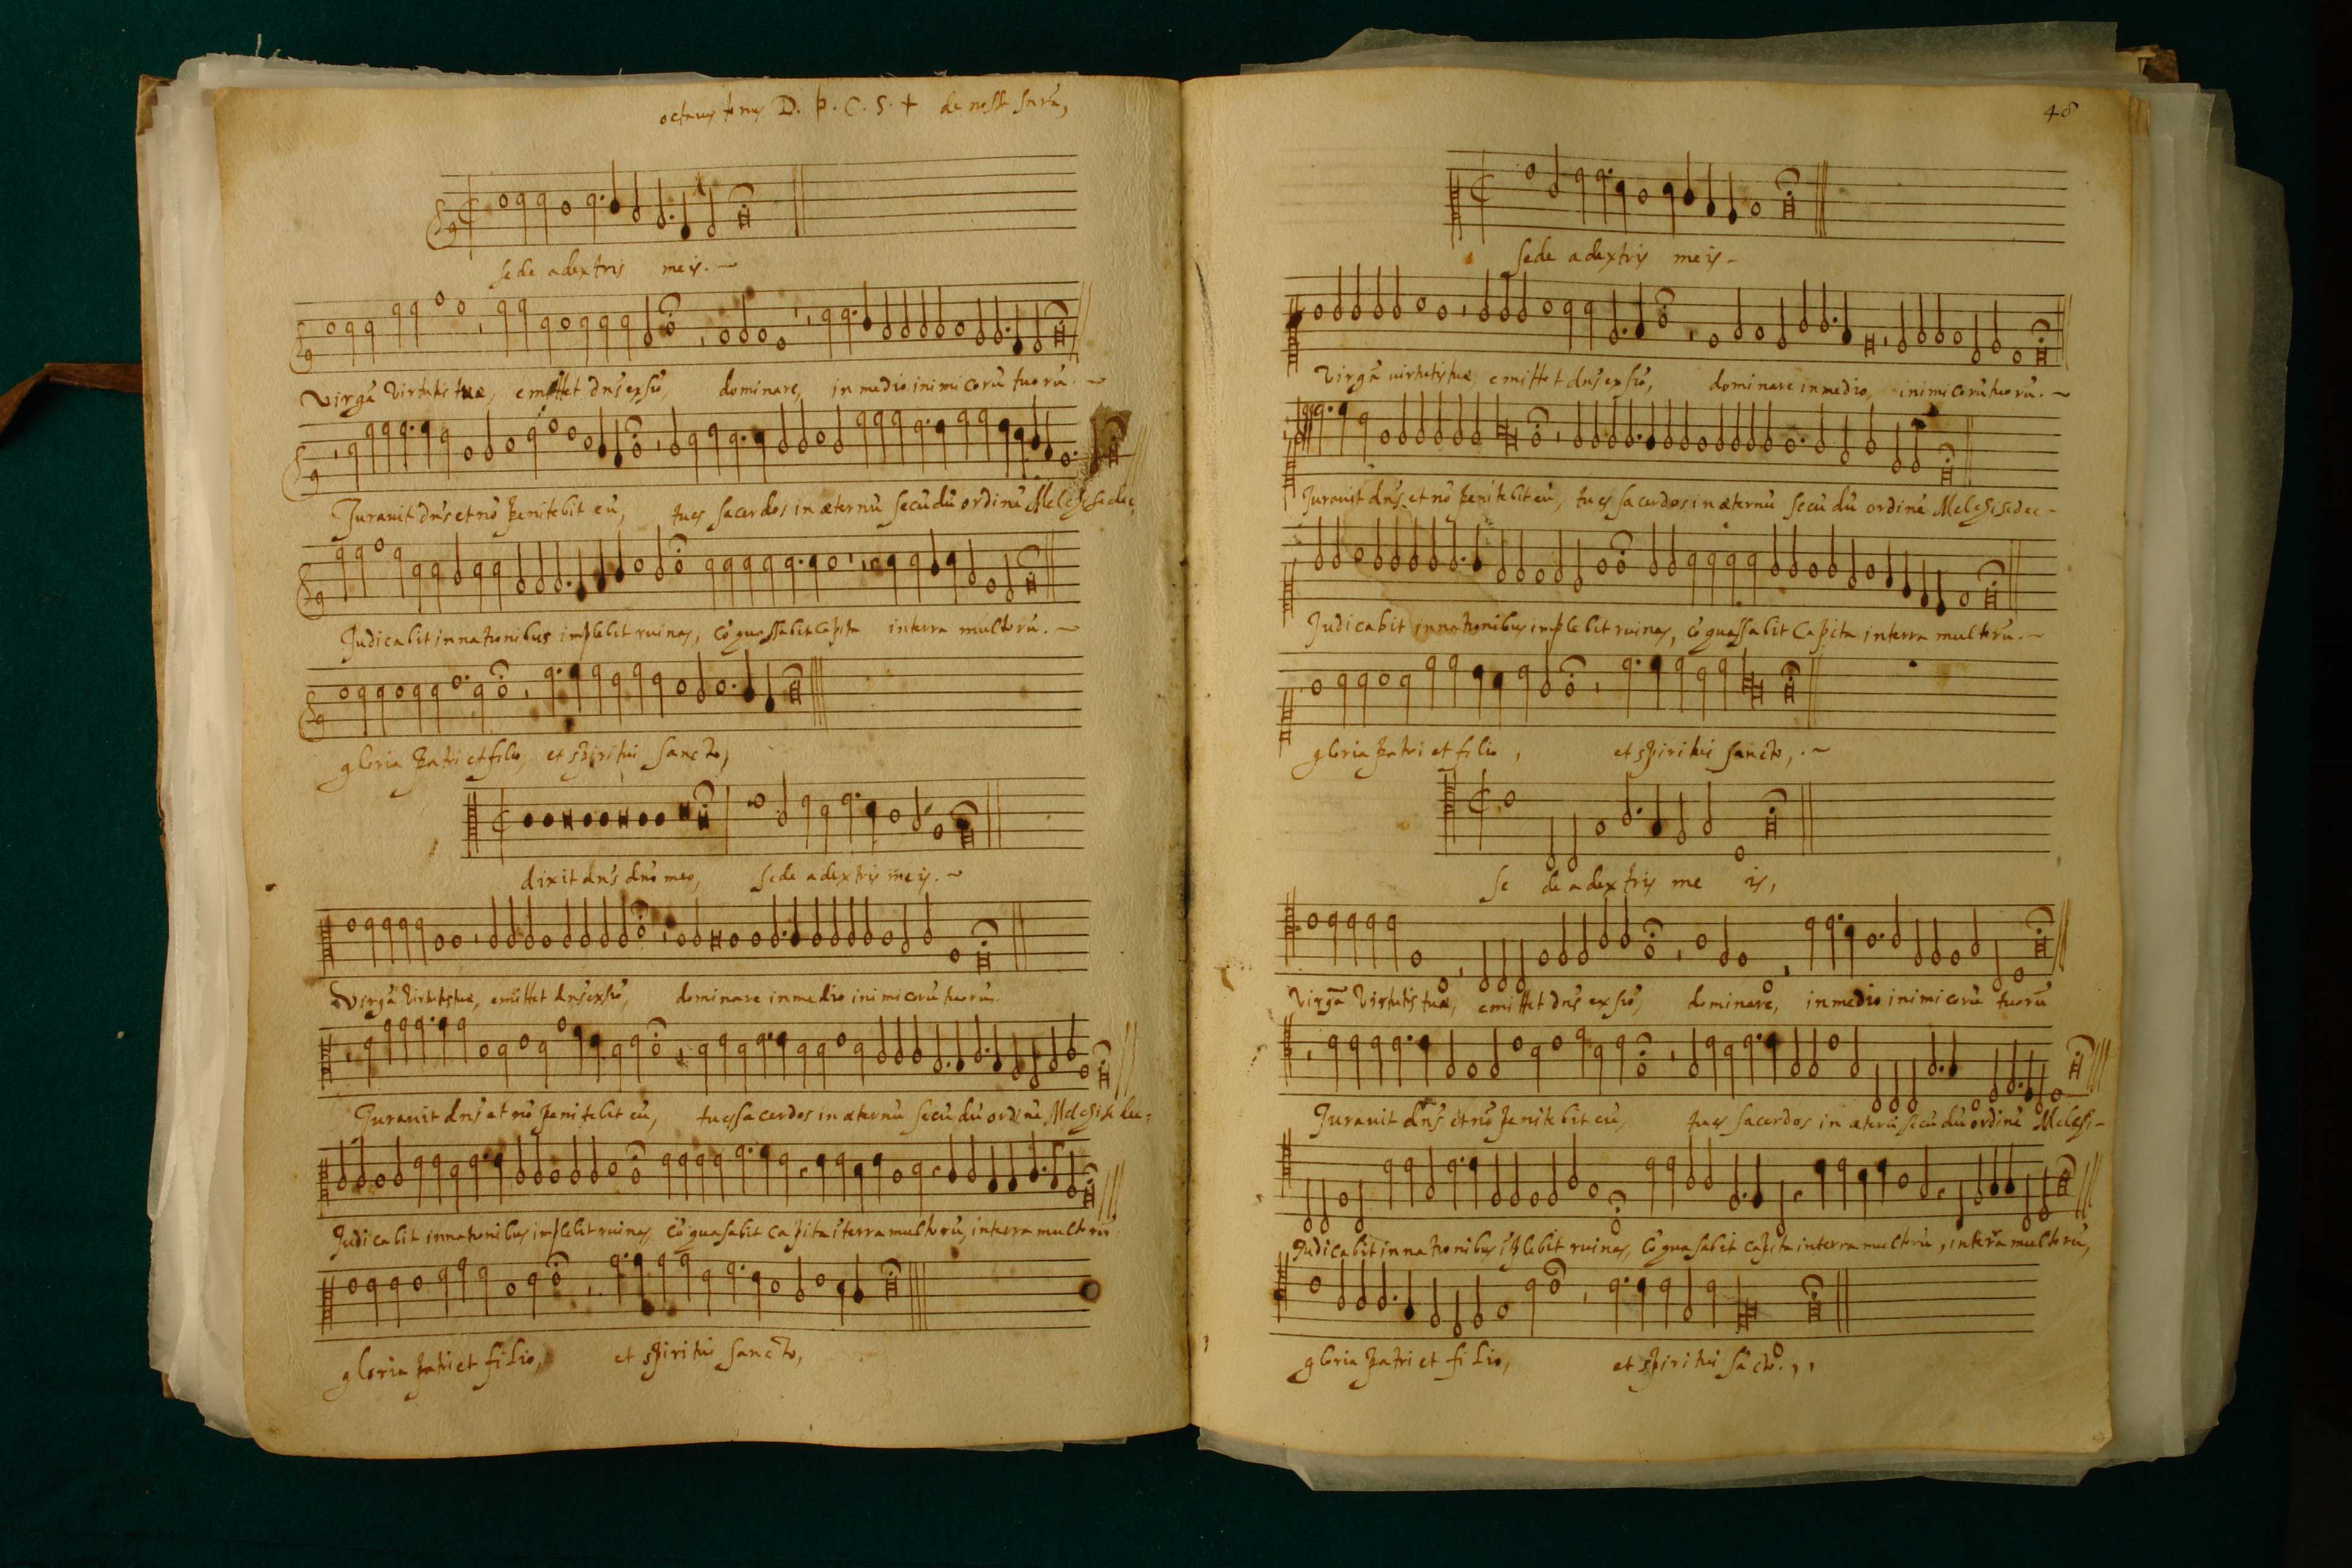 octauus tonus D. p. C. S. +
sede adextris meis. ~
Virgā Virtutis tuæ, emittet dn̄s ex siō, dominare, in medio inimicorū tuorū. ~
Jurauit dn̄s et nō penitebit eū, tu es sacerdos in æternū secūdū ordinē Melchisedec,
Judicabit in nationibus implebit ruinas, cō quassabit capita in terra multorū. ~
gloria patri et filio, et spiritui sancto,
dixit dn̄s dn̄o meo, sede adextris meis. ~
Virgā Virtutis tuæ, emittet dn̄s ex siō, dominare in medio inimicorū tuorū
Jurauit dn̄s et nō penitebit eū, tu es sacerdos in æternū secūdū ordinē Melchisedec.
Judicabit in nationibus implebit ruinas, cō quasabit capita ī terra multorū, in terra multorū
gloria patri et filio, et spiritui sancto,
48
sede adextris meis ~
Virgā uirtutis tuæ, emittet dn̄s ex siō, dominare in medio, inimicorū tuorū. ~
Jurauit dn̄s et nō penitebit eū, tu es sacerdos in æternū secūdū ordinē Melchisedec -
Judicabit in nationibus implebit ruinas, cō quassabit capita in terra multorū. ~
gloria patri et filio, et spiritui sancto, . ~
se de adextris me is,
Virgā Virtutis tuæ, emittet dn̄s ex siō, dominare, in medio inimicorū tuorū
Jurauit dn̄s et nō penitebit eū, tu es sacerdos in æterū secūdū ordinē Melchi-
Judicabit in nationibus īplebit ruinas, cō quasabit capita in terra multorū, in terra multorū,
gloria patri et filio, et spiritui sācto.,,